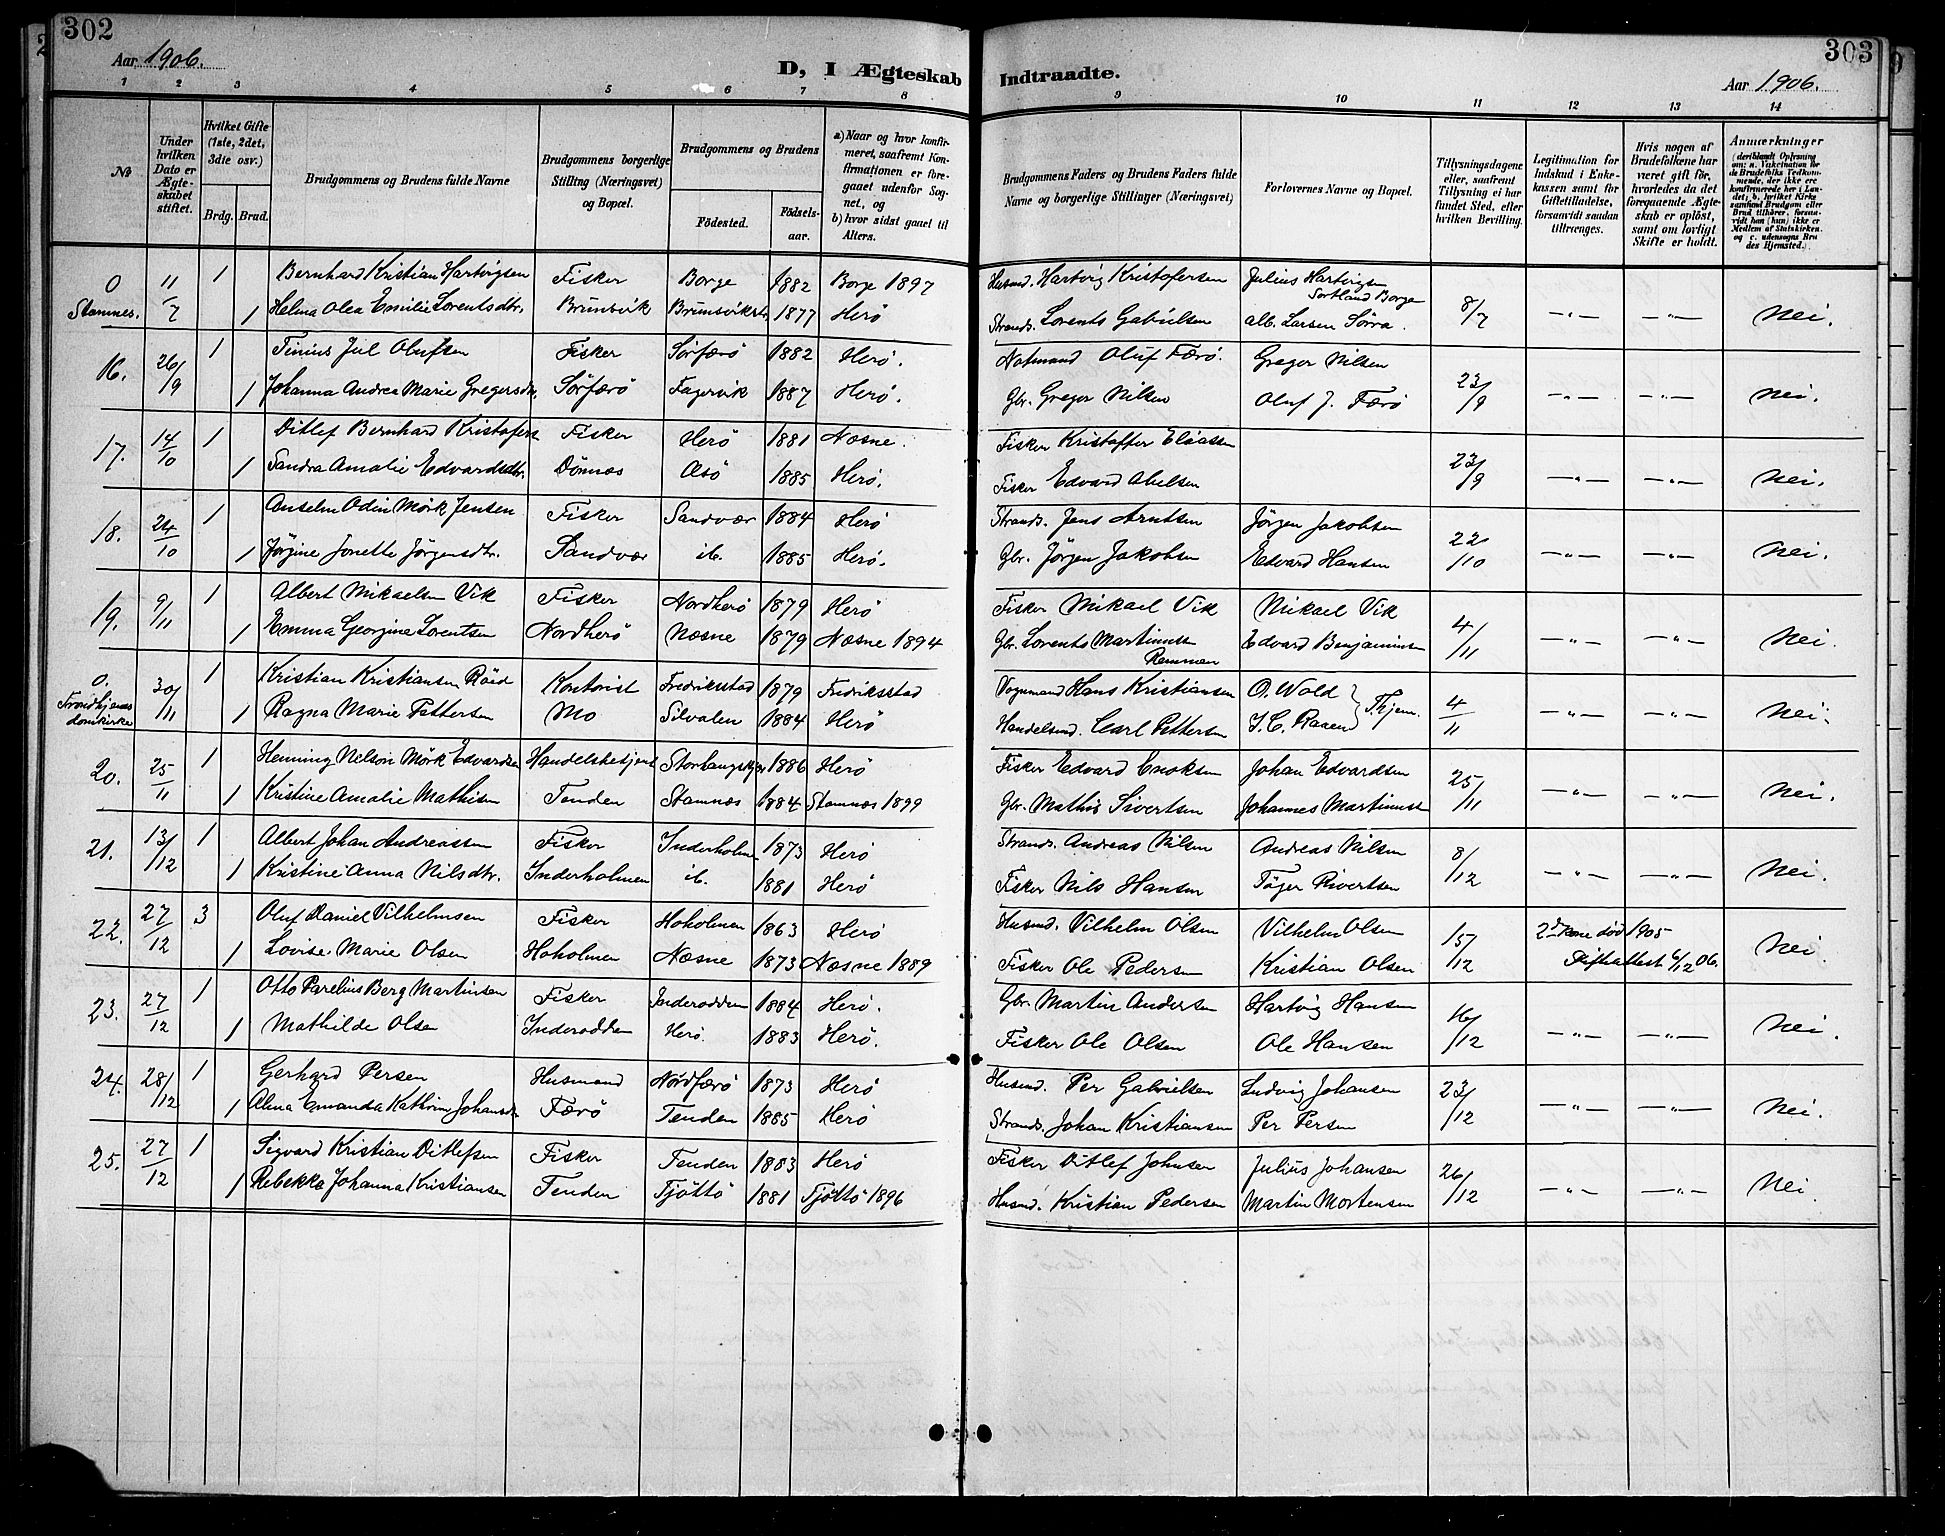 302
Aar 1906.
D, I Ægteskab
1 2 3 4 5 6 7 8
No
Under hvilken Dato er Ægteskabet stiftet.
Hvilket Gifte (1ste, 2det, 3die osv.)
Brdg. Brud.
Brudgommens og Brudens fulde Navne
Brudgommens borgerlige Stilling (Næringsvei) og Bopæl.
Brudgommens og Brudens
Födested. Födselsaar.
a) Naar og hvor konfirmeret, saafremt Konfirmationen er foregaaet udenfor Sognet, og
b) hvor sidst gaaet til Alters.
0 11 1 Bernhard Kristian Hartvigsen Fisker Borge 1882 Borge 1897
Stamnes. /7 1 Helma Olea Emilie Lorentsdtr. Brunsvik Brunsvikstr. 1877 Herö
16. 26/9 1 Tinius Jul Olufsen Fisker Sörfærö 1882 Herö.
1 Johanna Andrea Marie Gregersdtr. Sörfærö Fagervik 1887 Herö.
17. 14/10 1 Ditlef Bernhard Kristofers Fisker Herö 1881 Næsne.
1 Sandra Amalie Edvardsdtr. Dönnæs Æsö 1885 Herö.
18. 24/10 1 Anselm Odin Mörk Jensen Fisker Sandvær 1884 Herö
1 Jörgine Jonette Jörgensdtr. Sandvær ib. 1885 Herö.
19. 9/11 1 Albert Mikaelsen Vik Fisker Nordherö 1879 Herö
1 Emma Georgine Lorentsen Nordherö Næsne 1879 Næsne 1894
0. Trondhjems domkirke 30/11 1 Kristian Kristiansen Röed Kontorist Fredriksstad 1879 Fredriksstad
1 Ragna Marie Pettersen Mo Silvalen 1884 Herö
20. 25/11 1 Henning Nelson Mörk Edvardsen Handelsbetjent Storhaugskjær 1886 Herö
1 Kristine Amalie Mathisen Tenden Stamnæs 1884 Stamnæs 1899
21. 13/12 1 Albert Johan Andreassen Fisker Inderholmen 1873 Herö
1 Kristine Anna Nilsdtr. Inderholmen ib. 1881 Herö
22. 27/12 3 Oluf Daniel Vilhelmsen Fisker Hoholmen 1863 Herö
1 Lovise Marie Olsen Hoholmen Næsne 1873 Næsne 1889
23. 27/12 1 Otto Parelius Berg Martinsen Fisker Inderodden 1884 Herö.
1 Mathilde Olsen Inderodden Herö. 1883 Herö.
24. 28/12 1 Gerhard Persen Husmand Nordfærö 1873 Herö
1 Alma Emanda Kathrine Johansdtr Færö Tenden 1885 Herö
25. 27/12 1 Sigvard Kristian Ditlefsen Fisker Tenden 1883 Herö
1 Rebekka Johanna Kristiansen Tenden Tjöttö 1881 Tjöttö 1896
303
Aar 1906.
Indtraadte.
9 10 11 12 13 14
Brudgommens Faders og Brudens Faders fulde Navne og borgerlige Stillinger (Næringsvei)
Forlovernes Navne og Bopæl.
Tillysningsdagene eller, saafremt Tillysning ei har fundet Sted, efter hvilken Bevilling.
Legitimation for Indskud i Enkekassen samt for Giftetilladelse, forsaavidt saadan tiltrænges.
Hvis nogen af Brudefolkene har været gift för, hvorledes da det foregaaende Ægteskab er oplöst, samt om lovligt Skifte er holdt.
Anmærkninger
(deriblandt Oplysning om: a. Vakcination for de Brudefolks Vedkommende, der ikke ere konfirmerede her i Landet; b. hvilket Kirkesamfund Brudgom eller Brud tilhörer, forsaavidt han (hun) ikke er Medlem af Statskirken og c. udensogns Brudes Hjemsted.)
Husmd. Hartvig Kristofersen Julius Hartvigsen Sortland Borge 8/7 —"— —"— Nei.
Strands. Lorents Gabrielsen Alb. Larsen Sörra.
Notmand Oluf Færö. Gregor Nilsen 23/9 —"— —"— Nei.
Gbr. Gregor Nilsen Oluf J. Færö
Fisker Kristoffer Eliassen 23/9 —"— —"— Nei.
Fisker Edvard Abelsen
Strands. Jens Arntsen Jörgen Jakobsen 22/10 —"— —"— Nei.
Gbr. Jörgen Jakobsen Edvard Hansen
Fisker Mikael Vik Mikael Vik 4/11 —"— —"— Nei.
Gbr. Lorents Martinussen Remmen Edvard Benjaminsen
Vognmand Hans Kristiansen O. Wold } T.hjem. 4/11 —"— —"— Nei.
Handelsmd. Carl Pettersen J. C. Raaen
Fisker Edvard Enoksen Johan Edvardsen 25/11 —"— —"— Nei.
Gbr. Mathis Sivertsen Johannes Martinussen
Strands. Andreas Nilsen Andreas Nilsen 8/12 —"— —"— Nei.
Fisker Nils Hansen Töger Sivertsen
Husmd. Vilhelm Olsen Vilhelm Olsen 15/12 2d Kone död 1905 Nei.
Fisker Ole Pedersen Kristian Olsen Skifteattest 6/12 06.
Gbr. Martin Andersen Hartvig Hansen 16/12 —"— —"— Nei.
Fisker Ole Olsen Ole Hansen
Husmd. Per Gabrielsen Ludvig Johansen 23/12 —"— —"— Nei.
Strands. Johan Kristiansen Per Persen
Fisker Ditlef Johnsen Julius Johansen 26/12 —"— —"— Nei.
Husmd. Kristian Pedersen Martin Mortensen